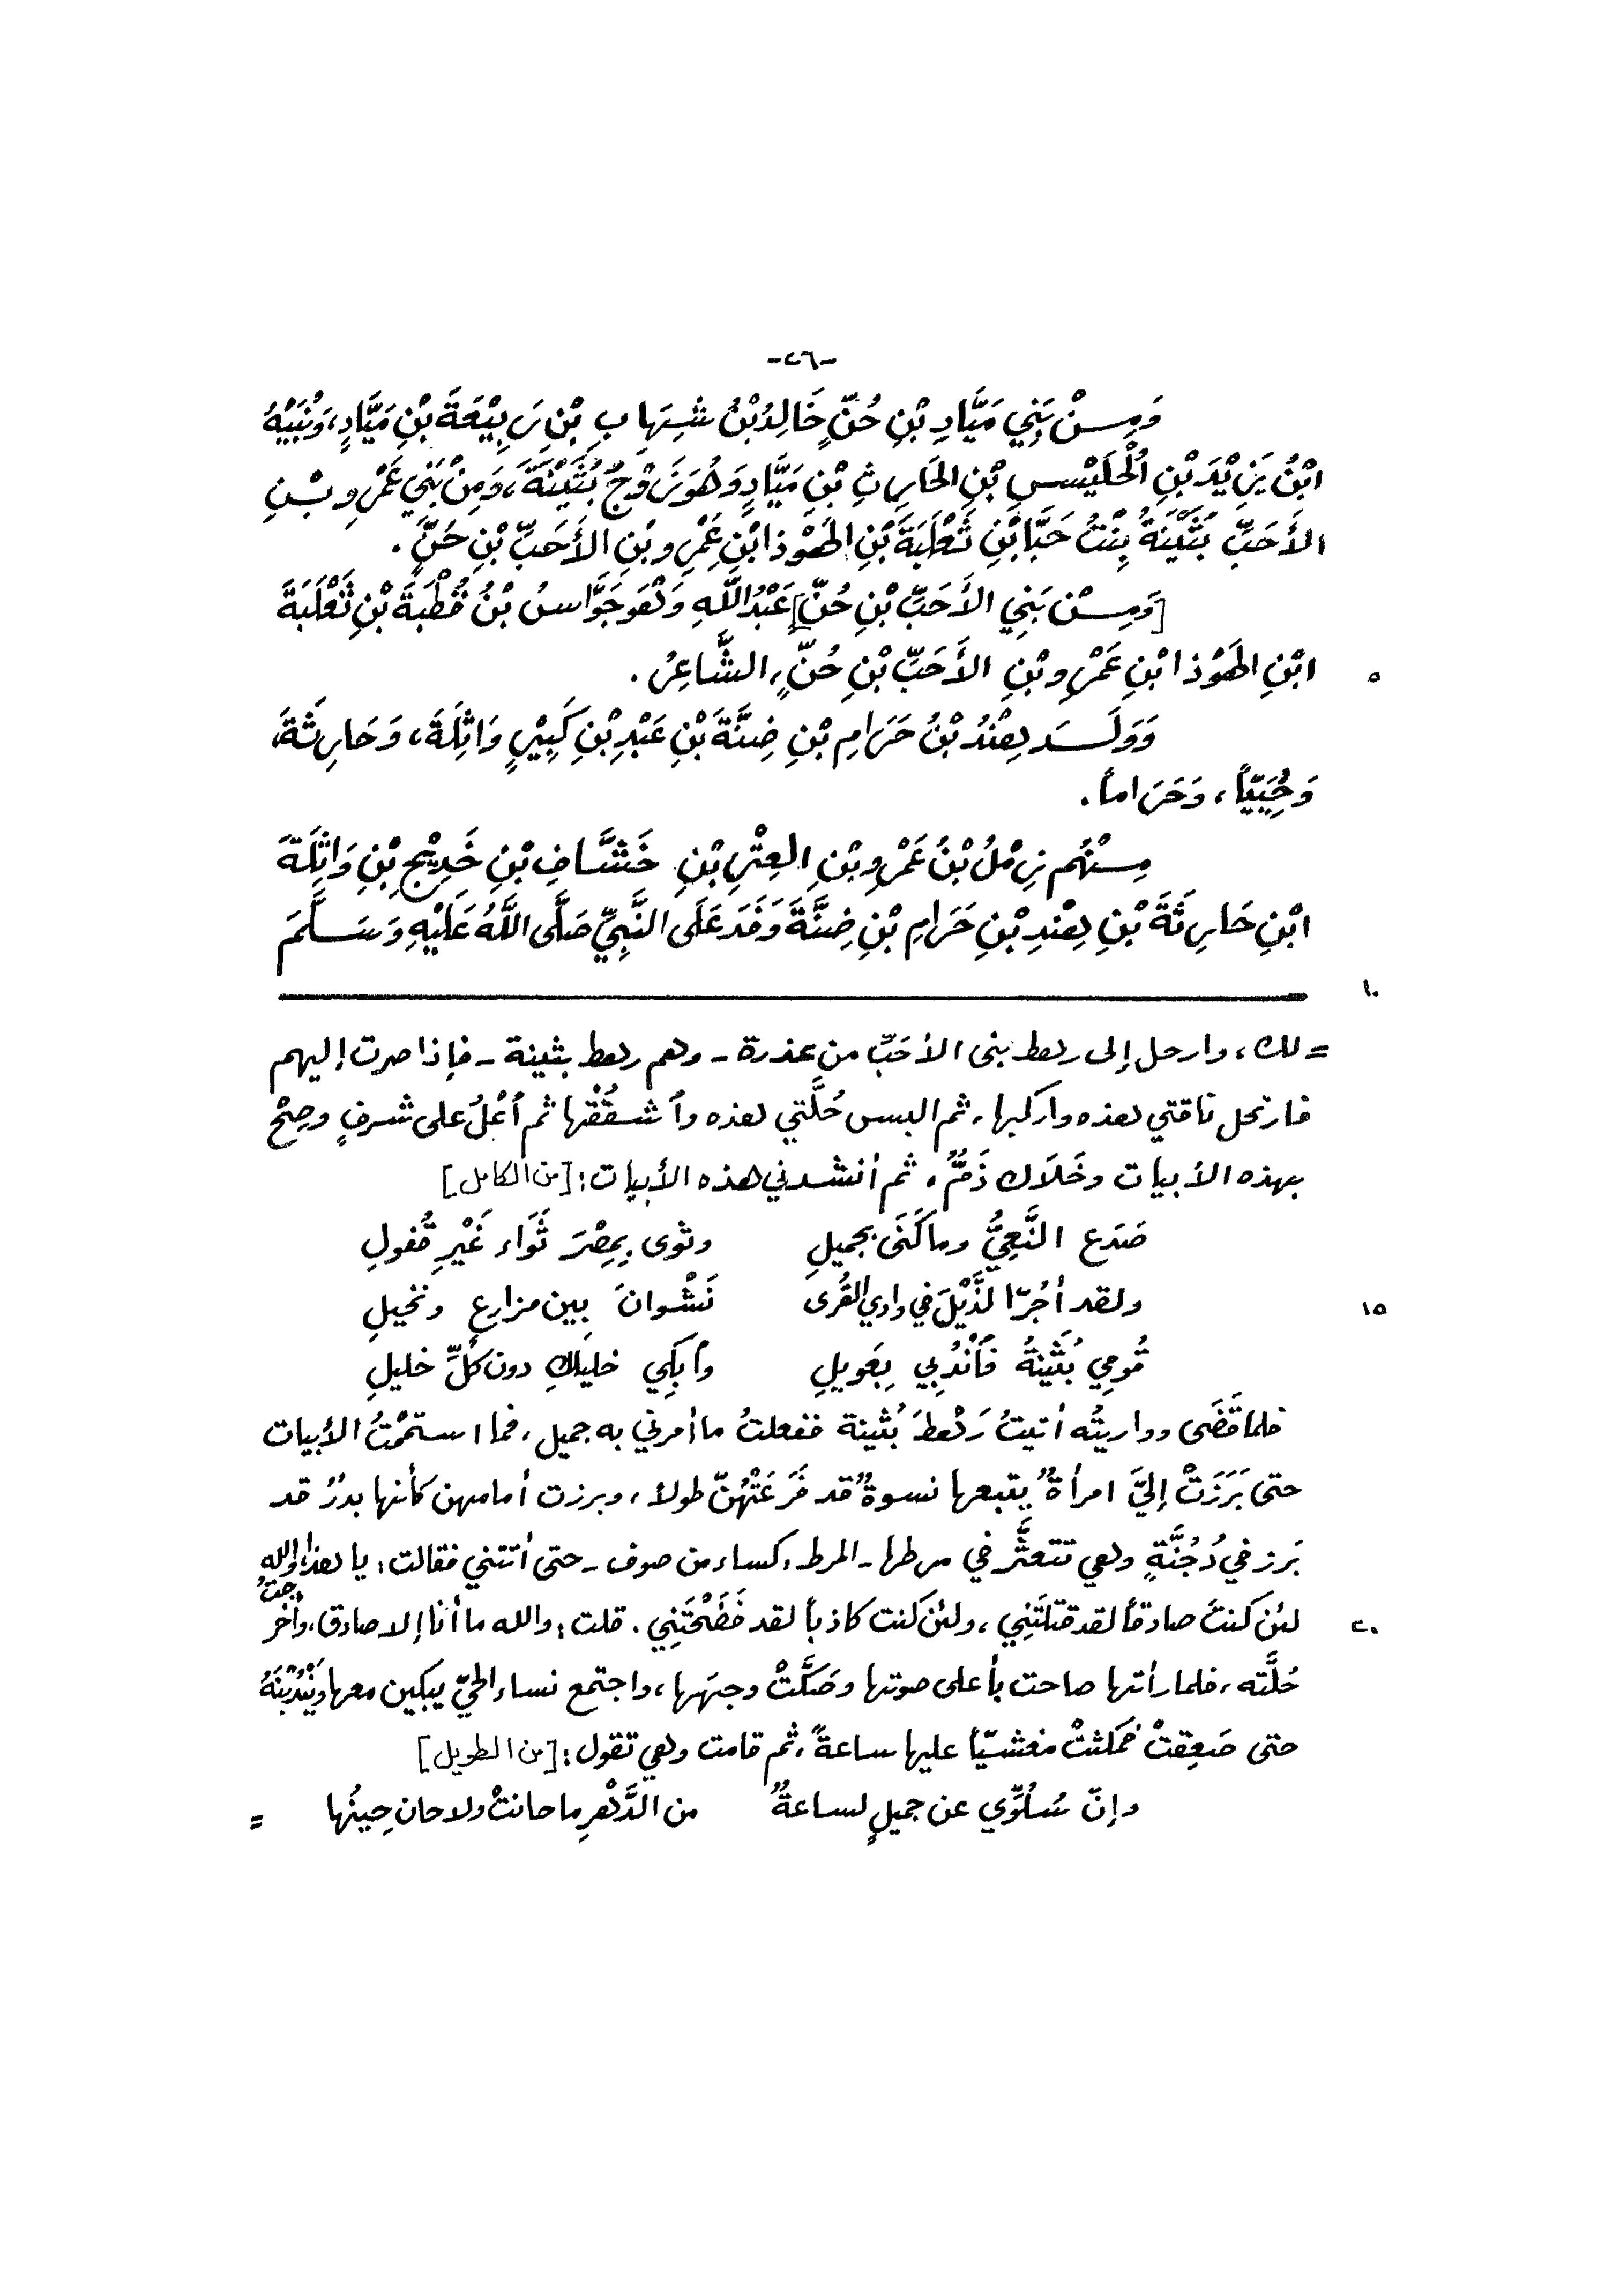 -٢٦-
وَمِنْ بَنِي مَيَّادِ بْنِ حُنٍّ خَالِدُ بْنُ شِهَابِ بْنِ رَبِيْعَةَ بْنِ مَيَّادٍ، وَنُبَيْهُ
ابْنُ يَزِيْدَ بْنِ الْحُلَيْسِ بْنِ الحَارِثِ بْنِ مَيَّادٍ وَهُوَ زَوْجُ بُثَيْنَةَ، وَمِنْ بَنِي عَمْرِو بْنِ
الأَحَبِّ بُثَيْنَةُ بِنْتُ حَبَّا بْنِ ثَعْلَبَةَ بْنِ الهَوْذا بْنِ عَمْرِو بْنِ الأَحَبِّ بْنِ حُنٍّ.
[وَمِنْ بَنِي الأَحَبِّ بْنِ حُنٍّ] عَبْدُ اللَّهِ وَهُوَ جَوَّاسُ بْنُ قُطْبَةَ بْنِ ثَعْلَبَةَ
ابْنِ الهَوْذا بْنِ عَمْرِو بْنِ الأَحَبِّ بْنِ حُنٍّ، الشَّاعِرُ. ٥
وَوَلَدَ هِنْدُ بْنُ حَرَامِ بْنِ ضِنَّةَ بْنِ عَبْدِ بْنِ كَبِيْرٍ وَاثِلَةَ، وَحَارِثَةَ،
وَحُيَيّاً، وَحَرَاماً.
مِنْهُم زِمْلُ بْنُ عَمْرِو بْنِ العِتْرِ بْنِ خَشَّافِ بْنِ خَدِيْجِ بْنِ وَاثِلَةَ
ابْنِ حَارِثَةَ بْنِ هِنْدِ بْنِ حَرَامِ بْنِ ضِنَّةَ وَفَدَ عَلَى النَّبِيِّ صَلَّى اللَّهُ عَلَيْهِ وَسَلَّمَ
١٠
= لك، وارحل إلى رهط بني الأحَبِّ من عذرة - وهم رهط بثينة - فإذا صرت إليهم
فارتحل ناقتي هذه واركبها، ثم البس حُلَّتي هذه وٱشقُقْها ثم ٱعْلُ على شرفٍ وصِحْ
بهذه الأبيات وخَلَاك ذَمٌّ، ثم أنشدني هذه الأبيات: [من الكامل]
صَدَع النَّعِيُّ وما كَنَى بجميلِ وثوى بِمِصْرَ ثَوَاء غَيْرِ قُفولِ
ولقد أجُرّ الذَّيْلَ في وادي القُرى نَشْوانَ بين مزارعٍ ونخيلِ ١٥
قُومِي بُثَينةُ فٱنْدُبِي بِعَويلِ وٱبكِي خليلكِ دون كلِّ خليلِ
فلما قَضَى وواريتُه أتيتُ رَهْطَ بُثينة ففعلتُ ما أمرني به جميل، فما استممْتُ الأبيات
حتى بَرَزَتْ إليَّ امرأةٌ يتبعها نسوةٌ قد فَرَعَتْهُنّ طولاً، وبرزت أمامهن كأنها بدرٌ قد
بَرز في دُجُنَّةٍ وهي تتعثَّر في مرطها - المرط: كساء من صوف - حتى أتتني فقالت: يا هذا، والله
لئن كنتَ صادقاً لقد قتلتَنِي، ولئن كنت كاذباً لقد فَضَحْتَنِي. قلت: والله ما أنا إلا صادق، وأخرجتُ ٢٠
حُلَّته، فلما رأتها صاحت بأعلى صوتها وصَكَّتْ وجهَها، واجتمع نساء الحيّ يبكين معها ويَنْدُبْنَهُ
حتى صَعِقتْ فمكثتْ مغشيّاً عليها ساعةً، ثم قامت وهي تقول: [من الطويل]
وإنّ سُلُوِّي عن جميلٍ لساعةٌ من الدَّهْرِ ما حانتْ ولا حان حِينُها =